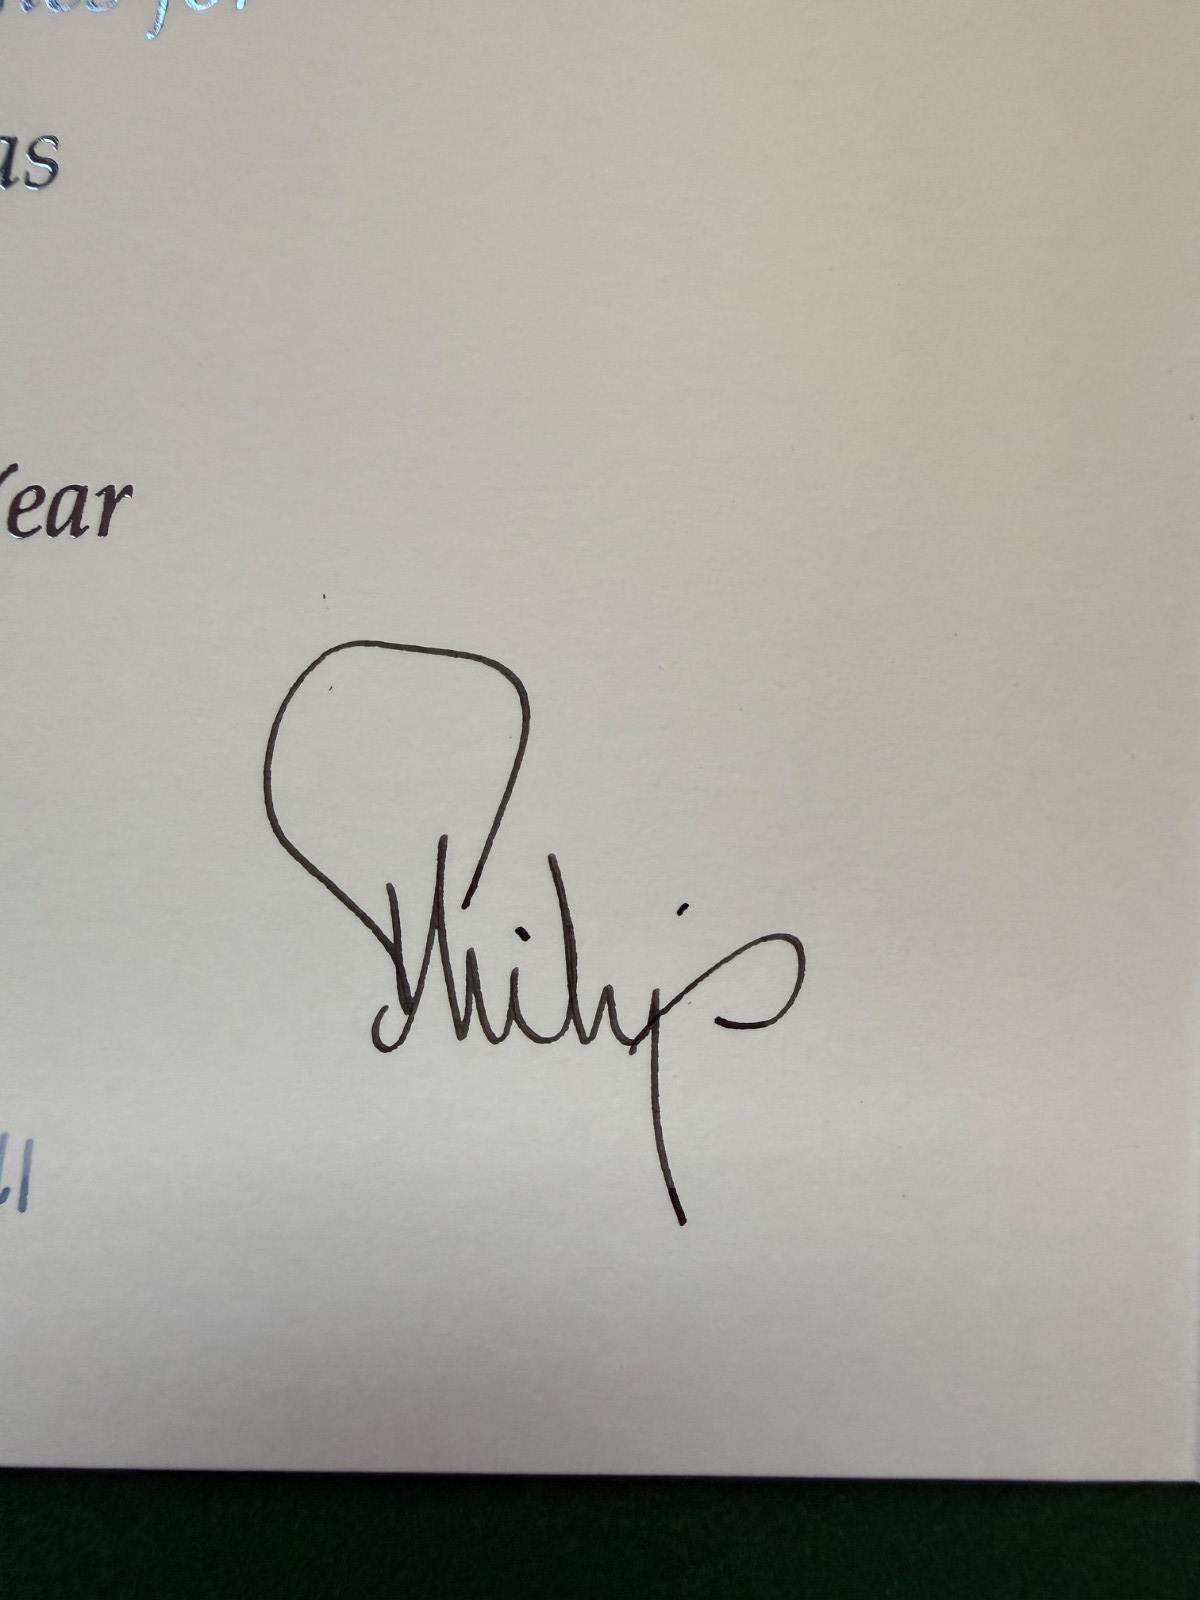 for
as
Year
Philip
11